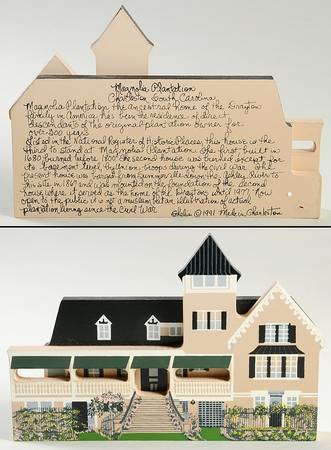 Magnolia Plantation
Charleston South Carolina
Magnolia Plantation, the ancestral home of the Drayton
family in America has been the residence of direct
descendants of the original plantation owner for
over 300 years.
Listed in the National Register of Historic Places, this house is the
third to stand at Magnolia Plantation. The first, built in
1680 burned before 1800. The second house was burned except for
its basement level by Union troops during the Civil War. The
present house was barged from Summerville down the Ashley River to
this site in 1867 and was mounted on the foundation of the second
house, where it served as the home of the Draytons until 1977. Now
open to the public it is not a museum but an illustration of active
plantation living since the Civil War.
Shelia © 1991 Made in Charleston